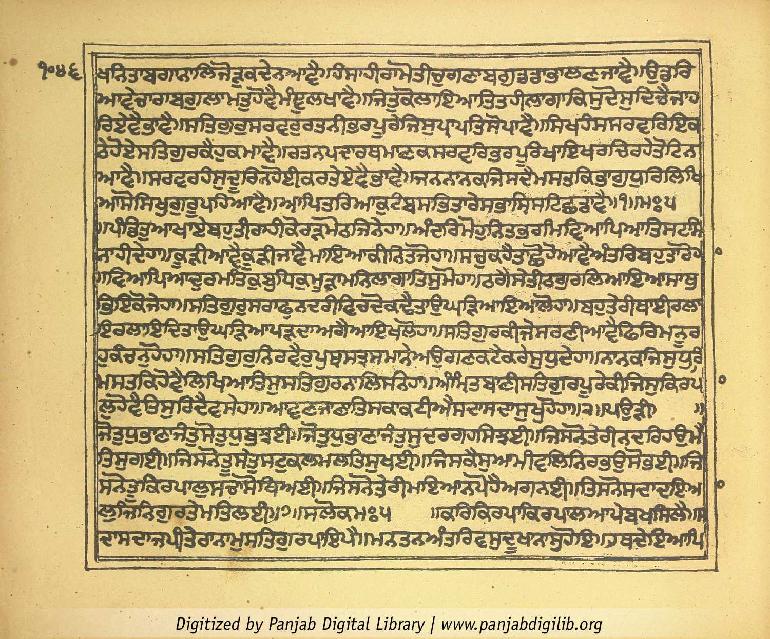 ੧੦੪੬
ਖਨਿਤਾਬਗਨਾਲਿਜੋੜੁਕਦੇਨਆਵੈ॥ਹੰਸਾਹੀਰਾਮੋਤੀਚੁਗਣਾਬਗੁਡਡਾਭਾਲਣਜਾਵੈ॥ਉਡਰਿ
ਆਵੇਚਾਰਾਬਗੁਲਾਮਤੁਹੋਵੈਮੰਞੁਲਖਾਵੈ॥ਜਿਤੁਕੋਲਾਇਆਤਿਤਹੀਲਾਗਾਕਿਸੁਦੋਸੁਦਿਚੈਜਾਹ
ਰਿਏਵੈਭਾਵੈ॥ਸਤਿਗੁਰੁਸਰਵਰੁਰਤਨੀਭਰਪੂਰੇਜਿਸੁਪ੍ਰਾਪਤਿਸੋਪਾਵੈ॥ਸਿਖਹੰਸਸਰਵਰਿਇਕ
ਠੇਹੋਏਸਤਿਗੁਰਕੈਹੁਕਮਾਵੈ॥ਰਤਨਪਦਾਰਥਮਾਣਕਸਰਵਰਿਭਰਪੂਰੇਖਾਇਖਰਚਿਰਹੇਤੋਟਿਨ
ਆਵੈ॥ਸਰਵਰਹੰਸੁਦੂਰਿਨਹੋਈਕਰਤੇਏਵੈਭਾਵੈ॥ਜਨਨਾਨਕਜਿਸਦੈਮਸਤਕਿਭਾਗੁਧੁਰਿਲਿਖਿ
ਆਸੋਸਿਖੁਗੁਰੂਪਹਿਆਵੈ॥ਆਪਿਤਰਿਆਕੁਟੰਬਸਭਿਤਾਰੇਸਭਾਸ੍ਰਿਸਟਿਛਡਾਵੈ॥੧॥ਮਃ੫
॥ਪੰਡਿਤੁਆਖਾਏਬਹੁਤੀਰਾਹੀਕੋਰੜਮੋਠਜਿਨੇਹਾ॥ਅੰਦਰਿਮੋਹੁਨਿਤਭਰਮਿਵਿਆਪਿਆਤਿਸਟਸਿ
ਨਾਹੀਦੇਹਾ॥ਕੂੜੀਆਵੈਕੂੜੀਜਾਵੈਮਾਇਆਕੀਨਿਤਜੋਹਾ॥ਸਚੁਕਹੈਤਾਛੋਹੋਆਵੈਅੰਤਰਿਬਹੁਤਾਰੋਹਾ
॥ਵਿਆਪਿਆਦੁਰਮਤਿਕੁਬੁਧਿਕੁਮੂੜਾਮਨਿਲਾਗਾਤਿਸੁਮੋਹਾ॥ਠਗੈਸੇਤੀਠਗੁਰਲਿਆਇਆਸਾਥੁ
ਭਿਇਕੋਜੇਹਾ॥ਸਤਿਗੁਰੁਸਰਾਫੁਨਦਰੀਵਿਚਦੋਕਢੈਤਾਉਘੜਿਆਇਆਲੋਹਾ॥ਬਹੁਤੇਰੀਥਾਈਰਲਾ
ਇਰਲਾਇਦਿਤਾਉਘੜਿਆਪੜਦਾਅਗੈਆਇਖਲੋਹਾ॥ਸਤਿਗੁਰਕੀਜੇਸਰਣੀਆਵੈਫਿਰਿਮਨੂਰ
ਹੁਕੰਚਨੁਹੋਹਾ॥ਸਤਿਗੁਰੁਨਿਰਵੈਰੁਪੁਤ੍ਰਸਤ੍ਰਸਮਾਨੇਅਉਗਣਕਟੇਕਰੇਸੁਧੁਦੇਹਾ॥ਨਾਨਕਜਿਸੁਧੁਰਿ
ਮਸਤਕਿਹੋਵੈਲਿਖਿਆਤਿਸੁਸਤਿਗੁਰਨਾਲਿਸਨੇਹਾ॥ਅੰਮ੍ਰਿਤਬਾਣੀਸਤਿਗੁਰਪੂਰੇਕੀਜਿਸੁਕਿਰਪਾ
ਲੁਹੋਵੈਤਿਸੁਰਿਦੈਵਸੇਹਾ॥ਆਵਣਜਾਣਾਤਿਸਕਾਕਟੀਐਸਦਾਸਦਾਸੁਖੁਹੋਹਾ॥੨॥ਪਉੜੀ ॥
ਜੋਤੁਧੁਭਾਣਾਜੰਤੁਸੋਤੁਧੁਬੁਝਈ॥ਜੋਤੁਧੁਭਾਣਾਜੰਤੁਸੁਦਰਗਹਸਿਝਈ॥ਜਿਸਨੋਤੇਰੀਨਦਰਿਹਉਮੈ
ਤਿਸੁਗਈ॥ਜਿਸਨੋਤੂਸੰਤੁਸਟੁਕਲਮਲਤਿਸੁਖਈ॥ਜਿਸਕੈਸੁਆਮੀਵਲਿਨਿਰਭਉਸੋਭਈ॥ਜਿ
ਸਨੋਤੂਕਿਰਪਾਲੁਸਚਾਸੋਥਿਅਈ॥ਜਿਸਨੋਤੇਰੀਮਇਆਨਪੋਹੈਅਗਨਈ॥ਤਿਸਨੋਸਦਾਦਇਆ
ਲੁਜਿਨਿਗੁਰਤੇਮਤਿਲਈ॥੭॥ਸਲੋਕਮਃ੫ ॥ਕਰਿਕਿਰਪਾਕਿਰਪਾਲਆਪੇਬਖਸਿਲੈ॥ਸ
ਦਾਸਦਾਜਪੀਤੇਰਾਨਾਮੁਸਤਿਗੁਰਪਾਇਪੈ॥ਮਨਤਨਅੰਤਰਿਵਸੁਦੂਖਾਨਾਸੁਹੋਇ॥ਹਥਦੇਇਆਪਿ
Digitized by Panjab Digital Library | www.panjabdigilib.org